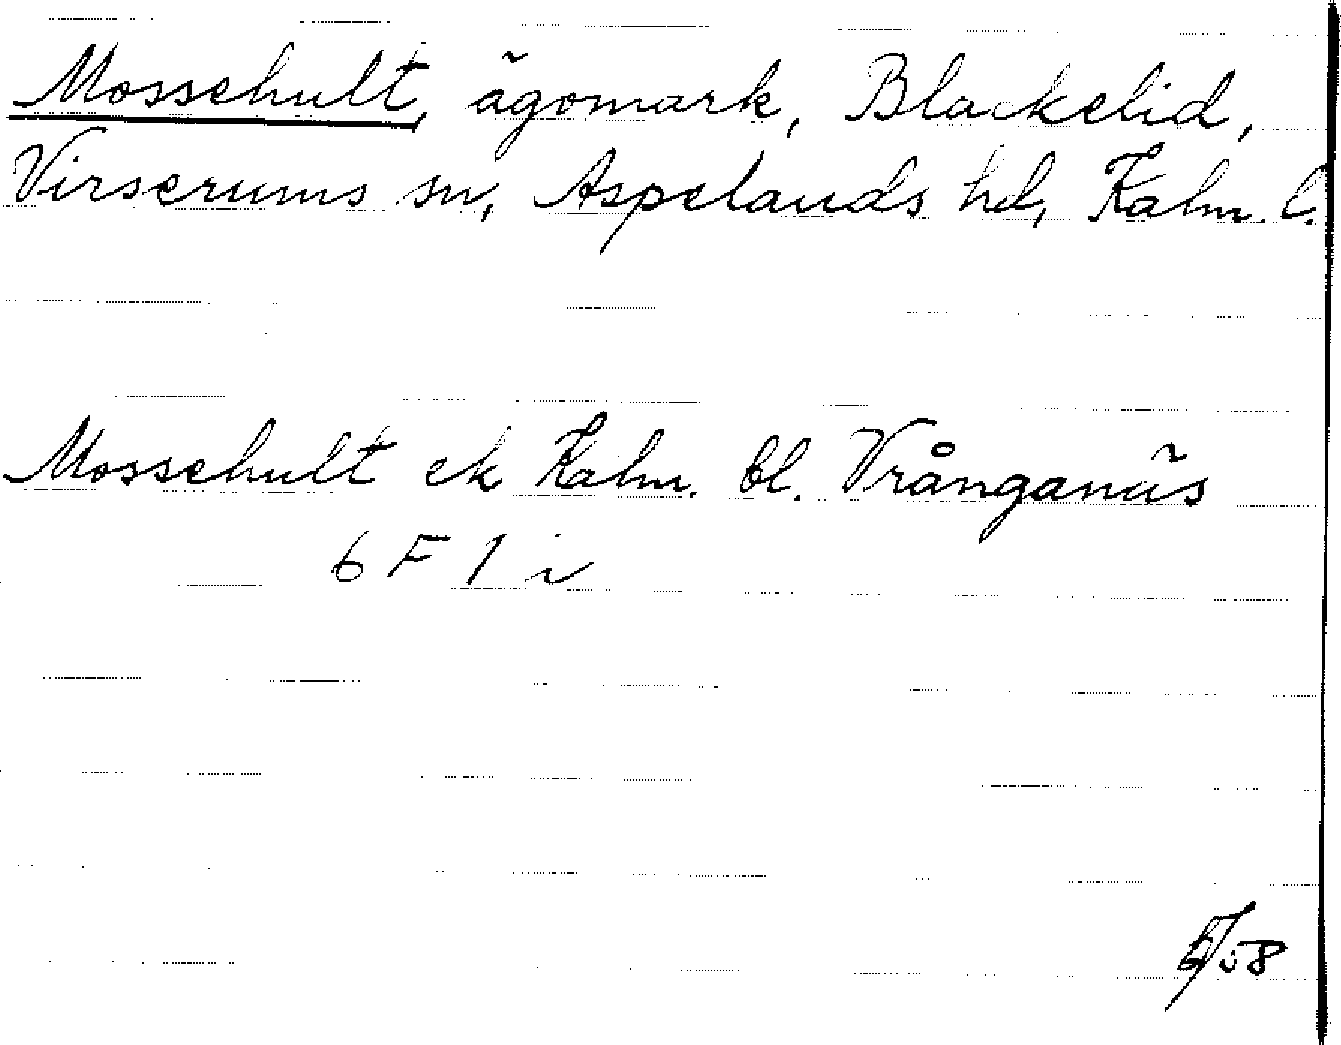 Mossehult, ägomark, Blackelid,
Virserums sn, Aspelands hd, Kalm. l.
Mossehult ek Kalm. bl. Vrånganäs
6 F 1 i
5/58